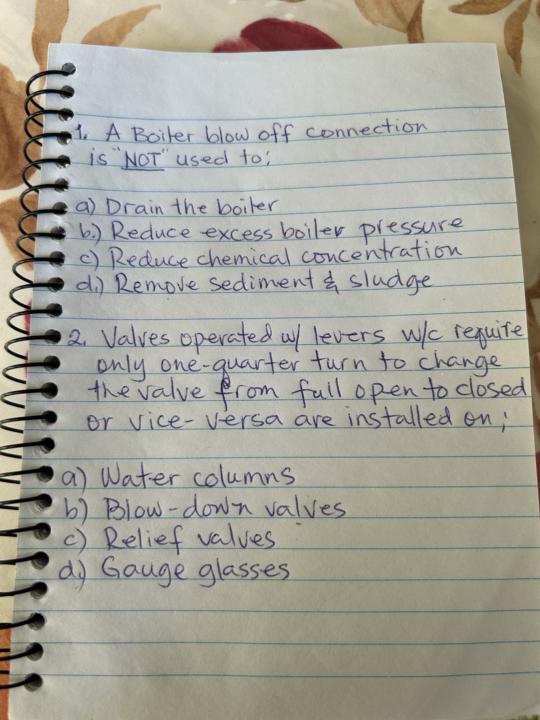 1. A Boiler blow off connection
is "NOT" used to;
a) Drain the boiler
b.) Reduce excess boiler pressure
c) Reduce chemical concentration
d.) Remove sediment & sludge
2. Valves operated w/ levers w/c require
only one-quarter turn to change
the valve from full open to closed
or vice-versa are installed on;
a) Water columns
b) Blow-down valves
c) Relief valves
d.) Gauge glasses